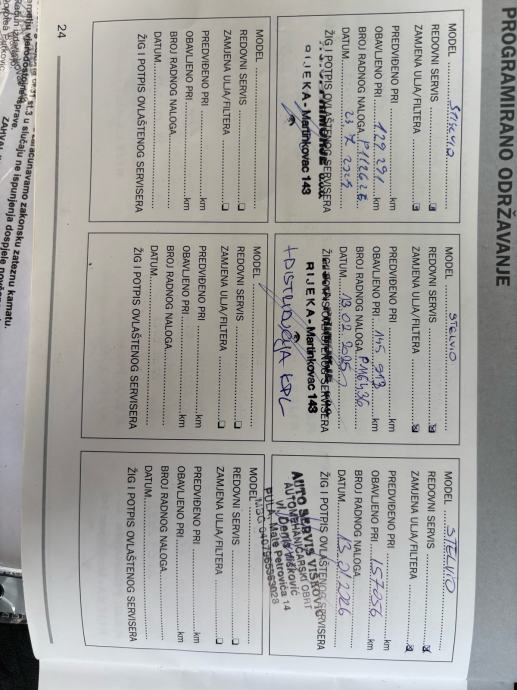 PROGRAMIRANO ODRŽAVANJE
MODEL STELVIO
REDOVNI SERVIS
ZAMJENA ULJA/FILTERA
PREDVIĐENO PRI km
OBAVLJENO PRI 129 291 km
BROJ RADNOG NALOGA
DATUM
ŽIG I POTPIS OVLAŠTENOG SERVISERA
RIJEKA - Martinkovac 143
MODEL STELVIO
REDOVNI SERVIS
ZAMJENA ULJA/FILTERA
PREDVIĐENO PRI km
OBAVLJENO PRI 145 913 km
BROJ RADNOG NALOGA P116436
DATUM 13.02.2025
ŽIG I POTPIS OVLAŠTENOG SERVISERA
RIJEKA - Martinkovac 143
+ DISTRIBUCIJA KPL
MODEL STELVIO
REDOVNI SERVIS
ZAMJENA ULJA/FILTERA
PREDVIĐENO PRI km
OBAVLJENO PRI 157056 km
BROJ RADNOG NALOGA
DATUM 13.01.2026
ŽIG I POTPIS OVLAŠTENOG SERVISERA
AUTO SERVIS VIŠKOVIĆ
AUTOMEHANIČARSKI OBRT
vl. Denis Višković
PULA, Mate Petrovića 14
MODEL
REDOVNI SERVIS
ZAMJENA ULJA/FILTERA
PREDVIĐENO PRI km
OBAVLJENO PRI km
BROJ RADNOG NALOGA
DATUM
ŽIG I POTPIS OVLAŠTENOG SERVISERA
MODEL
REDOVNI SERVIS
ZAMJENA ULJA/FILTERA
PREDVIĐENO PRI km
OBAVLJENO PRI km
BROJ RADNOG NALOGA
DATUM
ŽIG I POTPIS OVLAŠTENOG SERVISERA
MODEL
REDOVNI SERVIS
ZAMJENA ULJA/FILTERA
PREDVIĐENO PRI km
OBAVLJENO PRI km
BROJ RADNOG NALOGA
DATUM
ŽIG I POTPIS OVLAŠTENOG SERVISERA
24
zaračunavamo zakonsku zateznu kamatu.
u slučaju ne ispunjenja dospjele
vjerodostojne isprave.